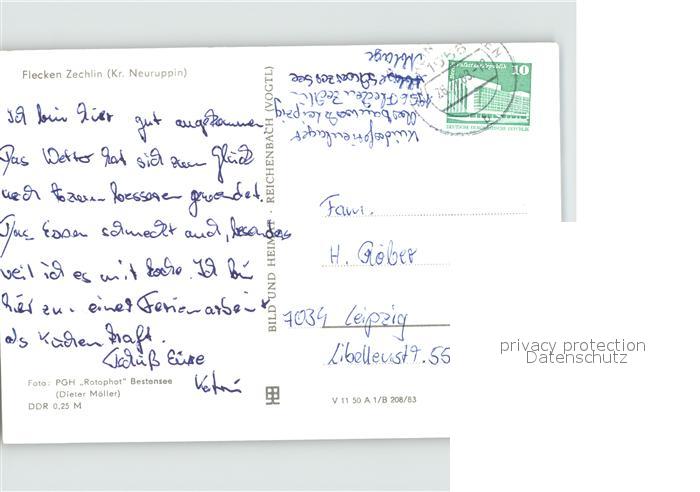 Flecken Zechlin (Kr. Neuruppin)
ich bin hier gut angekommen.
Das Wetter hat sich zum Glück
noch zum besseren gewendet.
Das Essen schmeckt auch, besonders
weil ich es mit koche. Ich bin
hier zu einer Ferienarbeit
als Küchenkraft.
Tschüß Eure
Katrin
Foto: PGH „Rotophot" Bestensee
(Dieter Möller)
DDR 0,25 M
BILD UND HEIMAT · REICHENBACH (VOGTL)
Kinderferienlager
Leipzig
1955 Flecken Zechlin
10
DEUTSCHE DEMOKRATISCHE REPUBLIK
1955
Fam.
H. Gröber
7034 Leipzig
Libellenstr. 55
V 11 50 A 1/B 208/83
privacy protection
Datenschutz